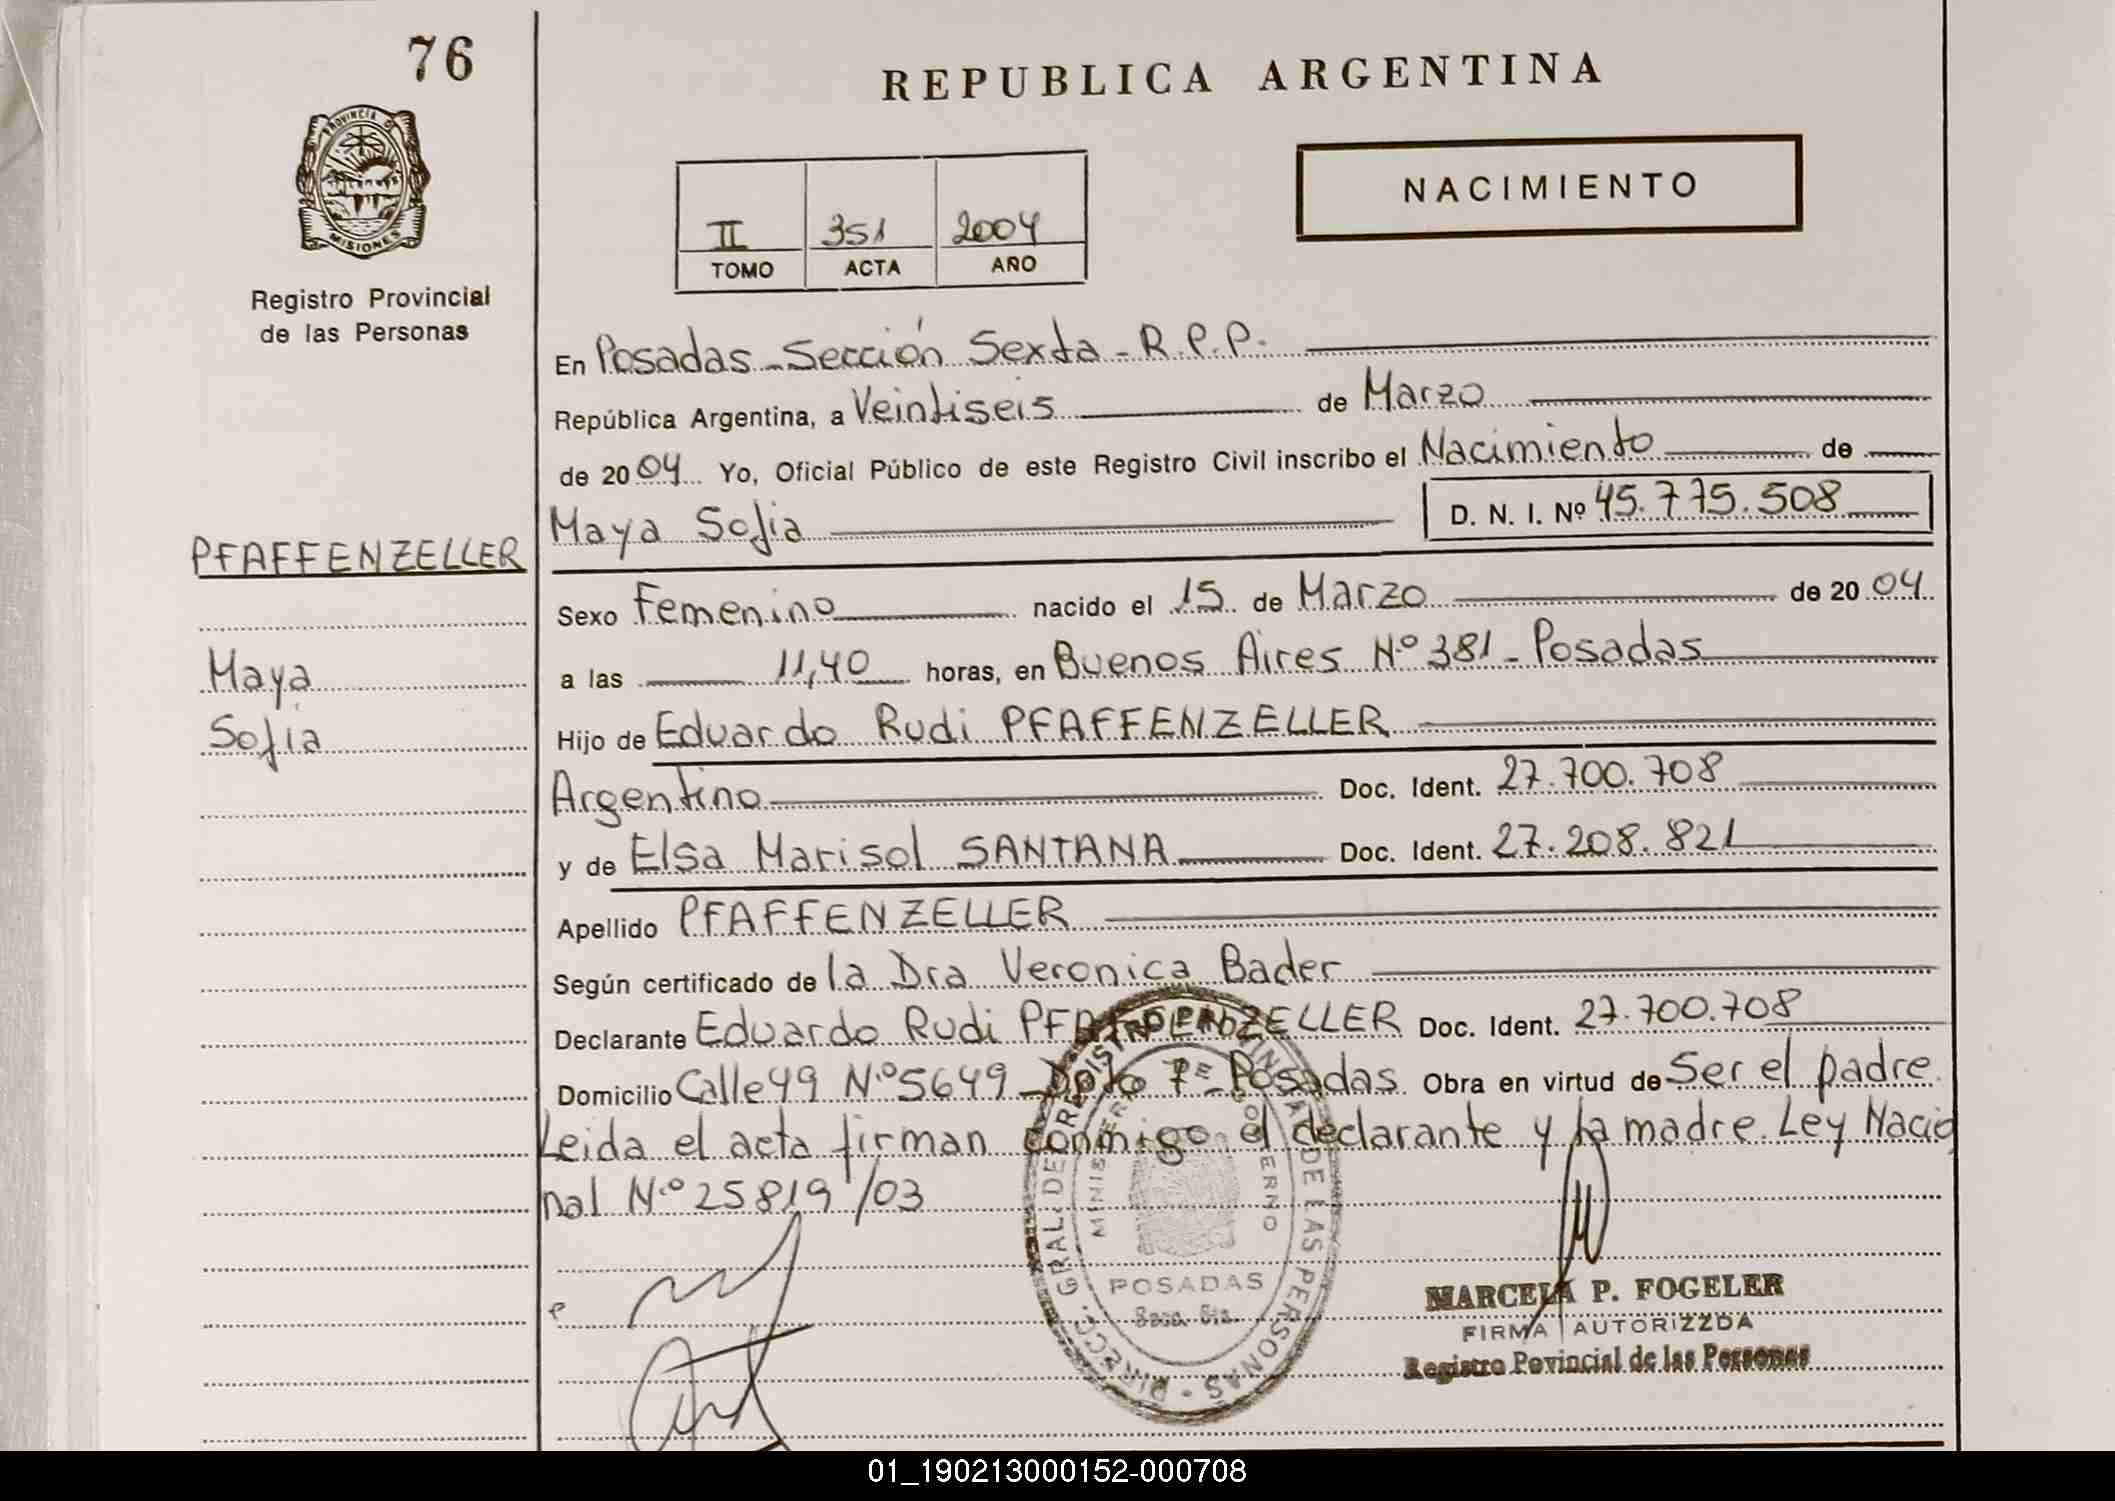 76
REPUBLICA ARGENTINA
PROVINCIA DE
MISIONES
NACIMIENTO
II 351 2004
TOMO ACTA AÑO
Registro Provincial
de las Personas
En Posadas - Sección Sexta - R.P.P.
República Argentina, a Veintiseis de Marzo
de 2004 Yo, Oficial Público de este Registro Civil inscribo el Nacimiento de
Maya Sofia D. N. I. Nº 45.775.508
PFAFFENZELLER
Sexo Femenino nacido el 15 de Marzo de 2004
Maya
a las 11,40 horas, en Buenos Aires Nº 381 - Posadas
Sofia
Hijo de Eduardo Rudi PFAFFENZELLER
Argentino Doc. Ident. 27.700.708
y de Elsa Marisol SANTANA Doc. Ident. 27.208.821
Apellido PFAFFENZELLER
Según certificado de la Dra Veronica Bader
Declarante Eduardo Rudi PFAFFENZELLER Doc. Ident. 27.700.708
Domicilio Calle 49 Nº 5649 Dpto 7 - Posadas Obra en virtud de Ser el padre.
Leida el acta firman conmigo el declarante y la madre. Ley Nacio
nal Nº 25819/03
DIRECC. GRAL. DE REGISTRO PROVINCIAL DE LAS PERSONAS
MINISTERIO DE GOBIERNO
POSADAS
MARCELA P. FOGELER
FIRMA AUTORIZZDA
Registro Povincial de las Personas
01_190213000152-000708